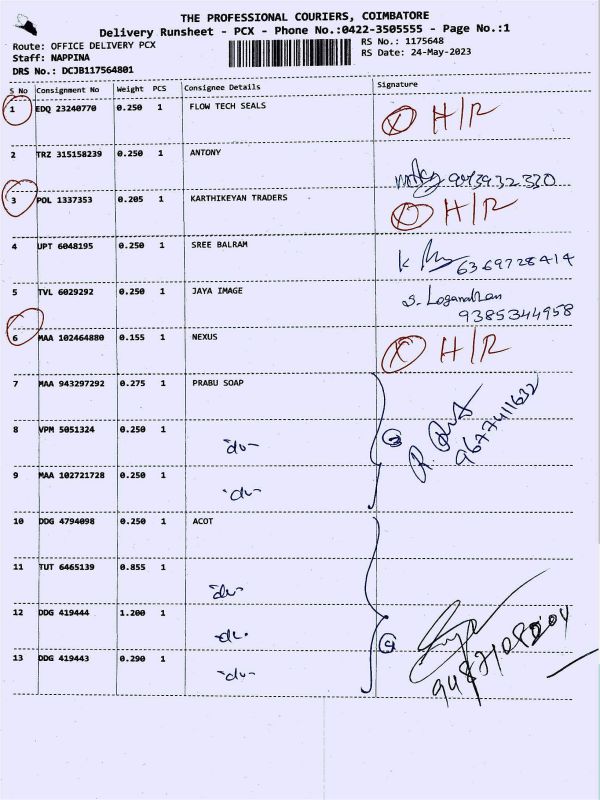 THE PROFESSIONAL COURIERS, COIMBATORE
Delivery Runsheet - PCX - Phone No.:0422-3505555 - Page No.:1
Route: OFFICE DELIVERY PCX
RS No.: 1175648
Staff: NAPPINA
RS Date: 24-May-2023
DRS No.: DCJB117564801
S No Consignment No Weight PCS Consignee Details Signature
1 EDQ 23240770 0.250 1 FLOW TECH SEALS X H/R
2 TRZ 315158239 0.250 1 ANTONY
3 POL 1337353 0.205 1 KARTHIKEYAN TRADERS X H/R
4 UPT 6048195 0.250 1 SREE BALRAM K 6369728414
5 TVL 6029292 0.250 1 JAYA IMAGE S. Loganathan
9385344958
6 MAA 102464880 0.155 1 NEXUS X H/R
7 MAA 943297292 0.275 1 PRABU SOAP
8 VPM 5051324 0.250 1 -do- 3 9677411632
9 MAA 102721728 0.250 1 -do-
10 DDG 4794098 0.250 1 ACOT
11 TUT 6465139 0.855 1 -do-
12 DDG 419444 1.200 1 -do-
13 DDG 419443 0.290 1 -do-